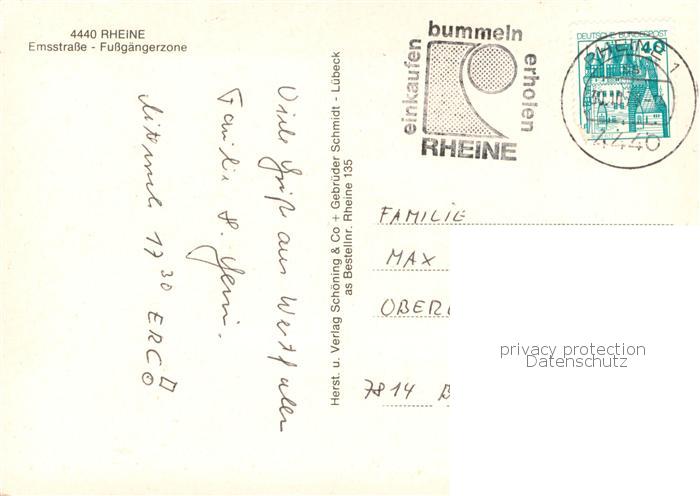 4440 RHEINE
Emsstraße - Fußgängerzone
Viele Grüße aus Westfalen
Familie H.
Mittwoch 1730 ERCO
Herst. u. Verlag Schöning & Co + Gebrüder Schmidt - Lübeck
as Bestellnr. Rheine 135
einkaufen
bummeln
erholen
RHEINE
DEUTSCHE BUNDESPOST
40
RHEINE 1
4440
FAMILIE
MAX
OBER
7814 B
privacy protection
Datenschutz